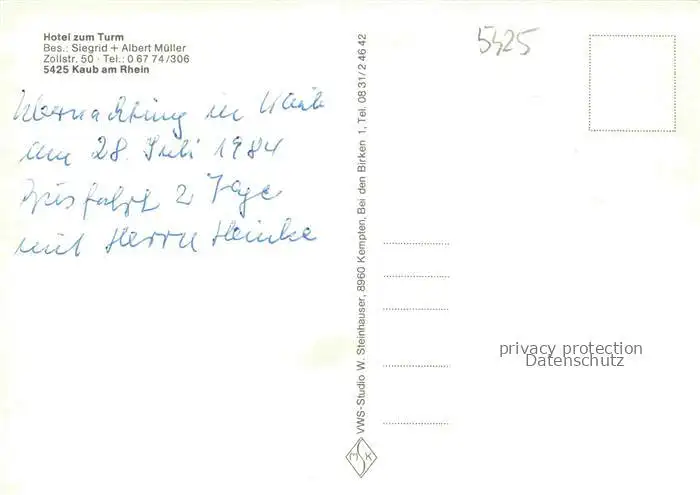 Hotel zum Turm
Bes.: Siegrid + Albert Müller
Zollstr. 50 · Tel.: 0 67 74/306
5425 Kaub am Rhein
Übernachtung in Kaub
am 28. Juli 1984
2 Tage
mit Herrn Heinke
VWS-Studio W. Steinhauser, 8960 Kempten, Bei den Birken 1, Tel. 08 31/2 46 42
MSK
5425
privacy protection
Datenschutz